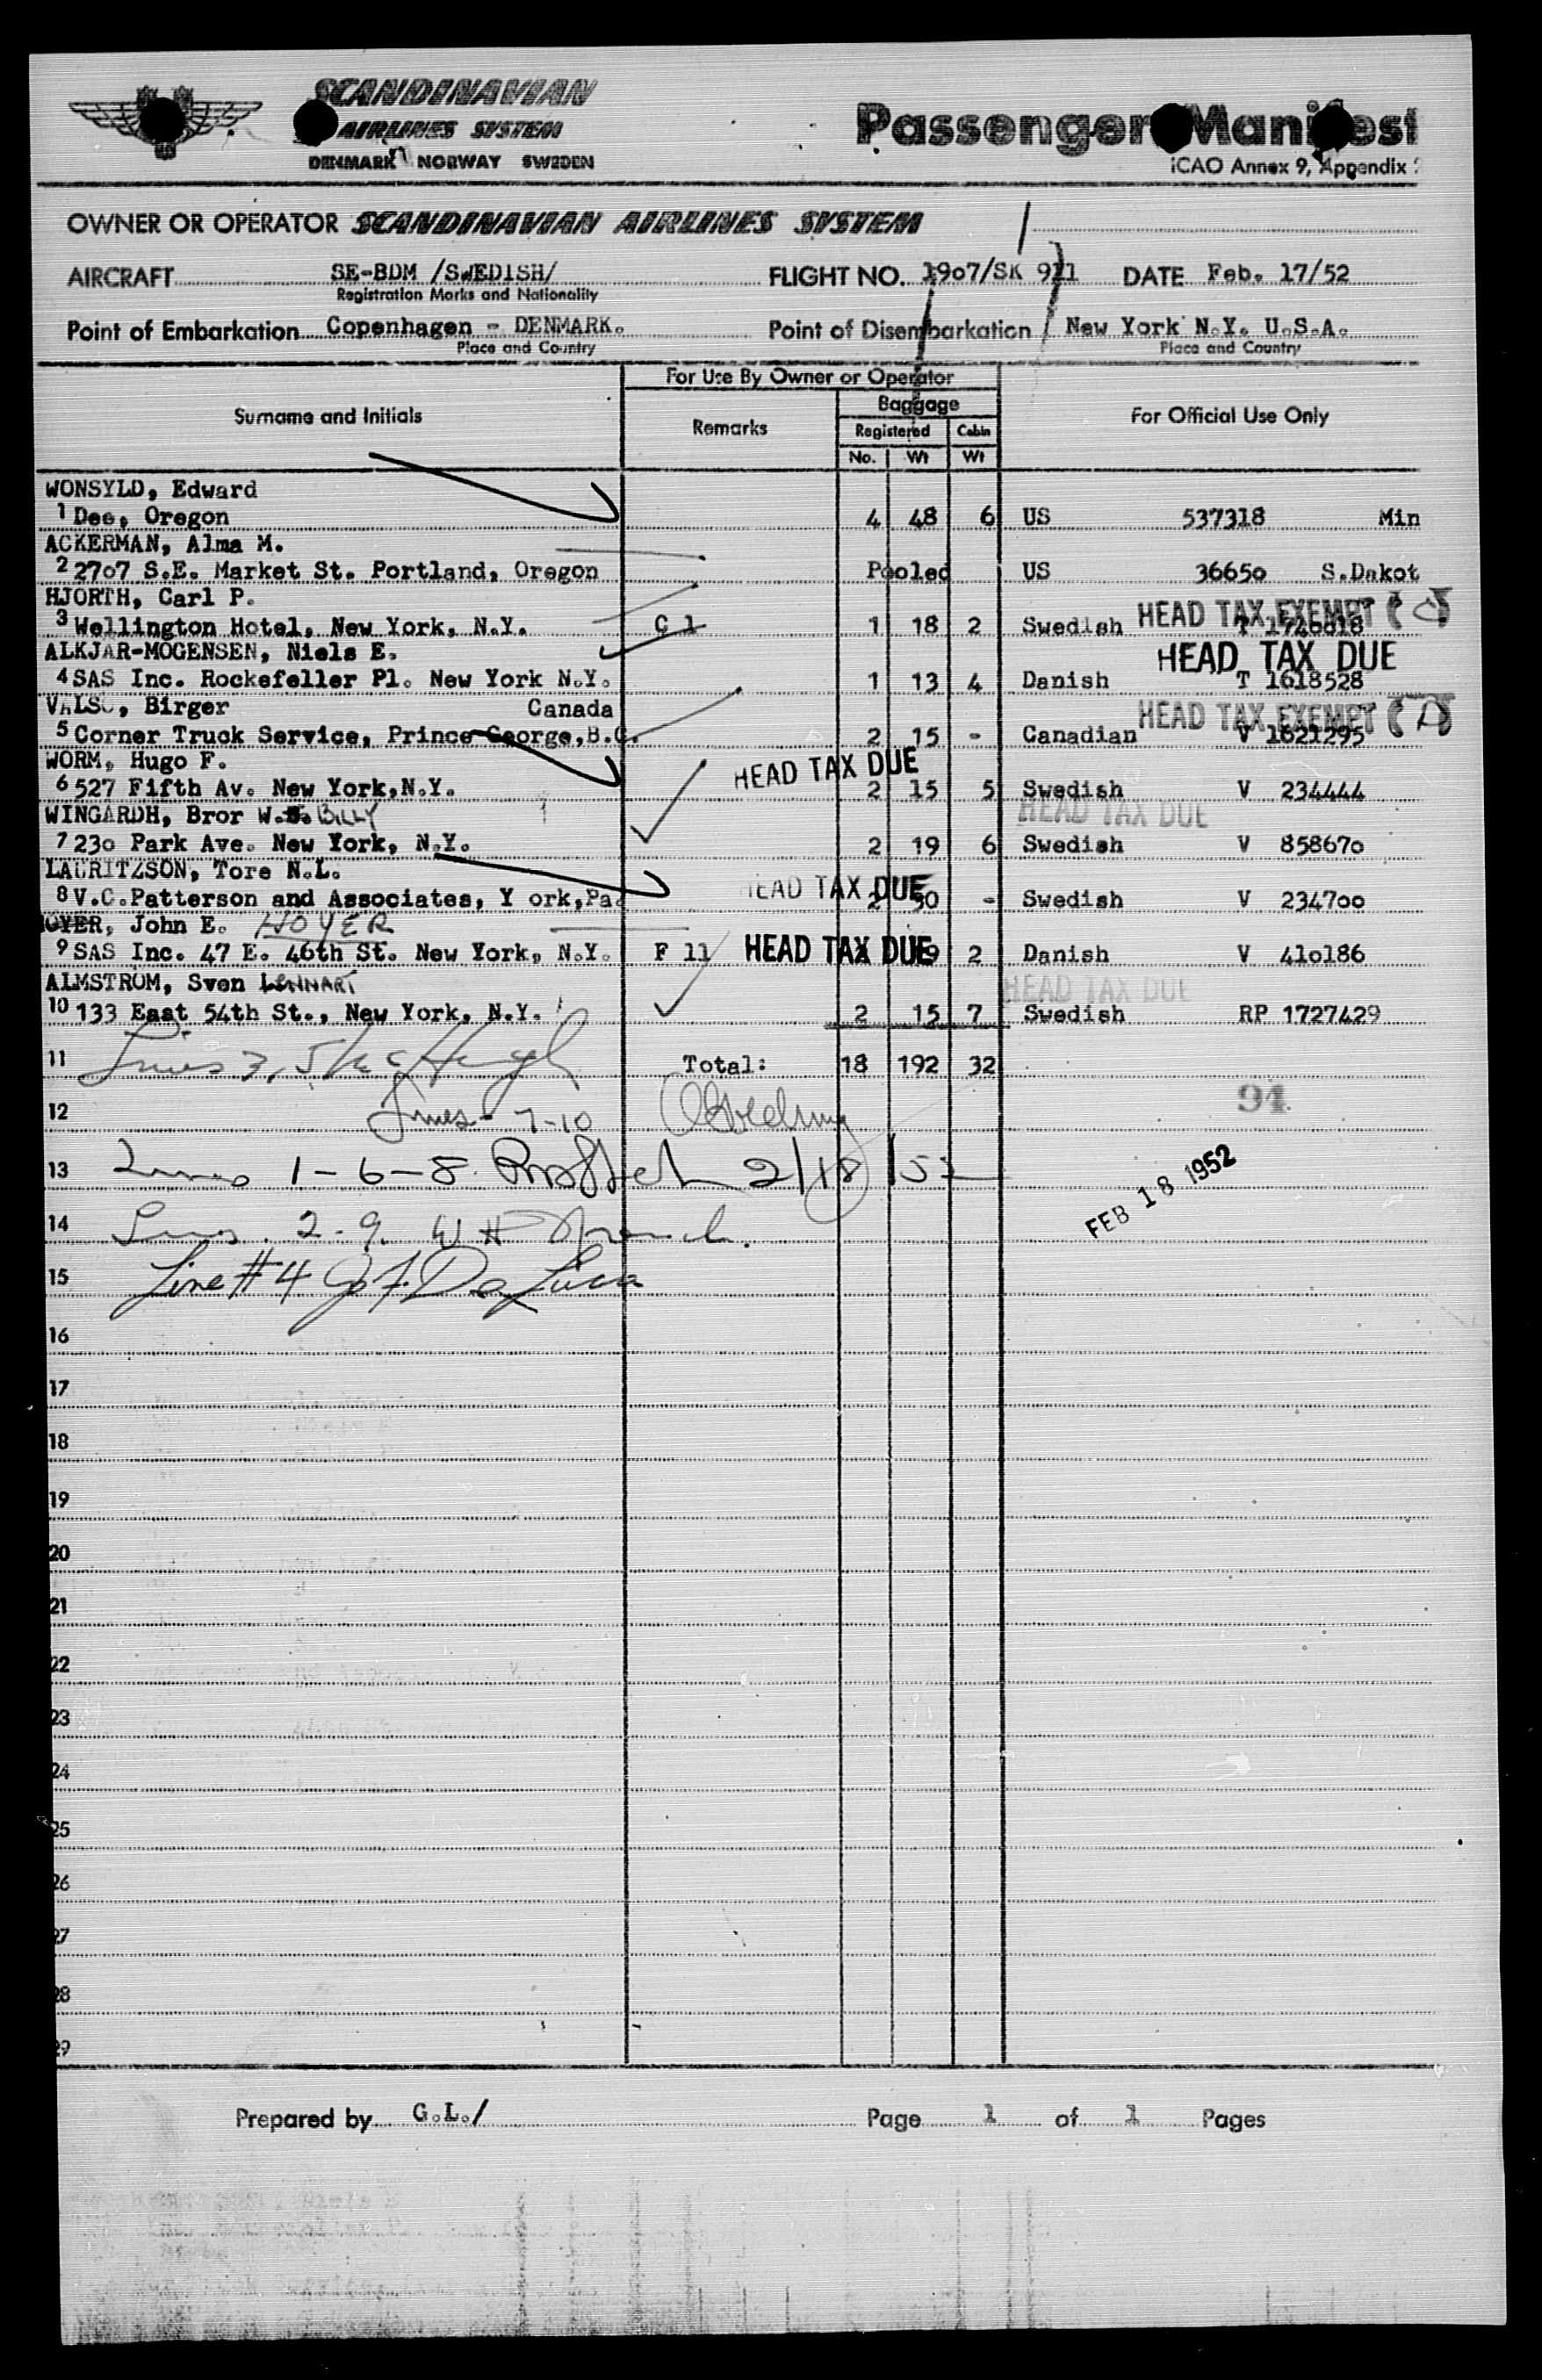 SCANDINAVIAN
AIRLINES SYSTEM
DENMARK NORWAY SWEDEN
Passenger Manifest
ICAO Annex 9, Appendix
OWNER OR OPERATOR SCANDINAVIAN AIRLINES SYSTEM
AIRCRAFT SE-BDM /SWEDISH/ FLIGHT NO. 1907/SK 911 DATE Feb. 17/52
Registration Marks and Nationality
Point of Embarkation Copenhagen - DENMARK. Point of Disembarkation New York N.Y. U.S.A.
Place and Country Place and Country
For Use By Owner or Operator
Surname and Initials Remarks Baggage For Official Use Only
Registered Cabin
No. Wt Wt
WONSYLD, Edward
1 Dee, Oregon 4 48 6 US 537318 Min
ACKERMAN, Alma M.
2 2707 S.E. Market St. Portland, Oregon Pooled US 36650 S.Dakot
HJORTH, Carl P. HEAD TAX EXEMPT
3 Wellington Hotel, New York, N.Y. C 1 1 18 2 Swedish T
ALKJAR-MOGENSEN, Niels E. HEAD TAX DUE
4 SAS Inc. Rockefeller Pl. New York N.Y. 1 13 4 Danish T 1618528
Birger Canada HEAD TAX EXEMPT
5 Corner Truck Service, Prince George, B.C. 2 15 - Canadian V 1621295
WORM, Hugo F. HEAD TAX DUE
6 527 Fifth Av. New York, N.Y. 2 15 5 Swedish V 234444
WINGARDH, Bror W. BILLY HEAD TAX DUE
7 230 Park Ave. New York, N.Y. 2 19 6 Swedish V 858670
LAURITZSON, Tore N.L.
8 V.C.Patterson and Associates, Y ork,Pa. HEAD TAX DUE 2 30 - Swedish V 234700
OYER, John E. HOYER
9 SAS Inc. 47 E. 46th St. New York, N.Y. F 11 HEAD TAX DUE 2 Danish V 410186
ALMSTROM, Sven LENNART HEAD TAX DUE
10 133 East 54th St., New York, N.Y. 2 15 7 Swedish RP 1727429
11 Lines 3, 5 Total: 18 192 32
12 Lines - 7-10 94
13 Lines 1-6-8 2/18/52
FEB 18 1952
14 Lines 2-9 W H
15 Line #4 J F DeLuca
16
17
18
19
20
21
22
23
24
25
26
27
28
29
Prepared by G.L./ Page 1 of 1 Pages